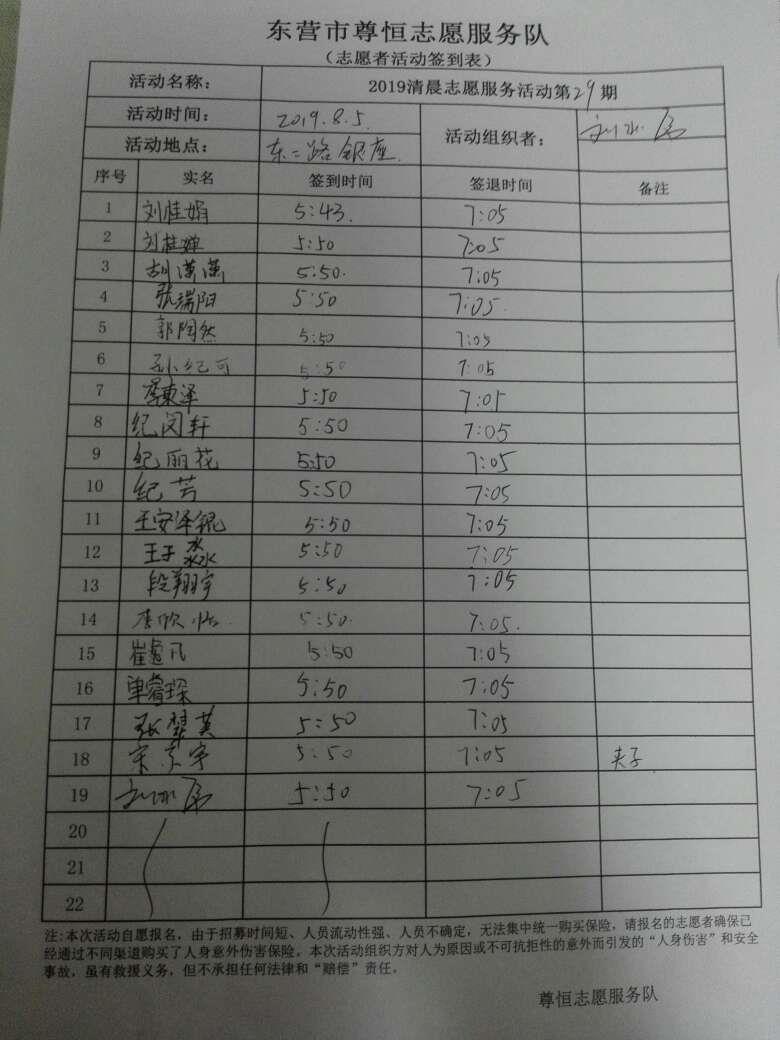 东营市尊恒志愿服务队
（志愿者活动签到表）
活动名称： 2019清晨志愿服务活动第29期
活动时间： 2019.8.5. 活动组织者：
活动地点： 东二路银座.
序号 实名 签到时间 签退时间 备注
1 刘桂娟 5:43. 7:05
2 刘桂婵 5:50 7:05
3 胡潇潇 5:50. 7:05
4 张瑞阳 5:50 7:05.
5 郭陶然 5:50 7:05
6 孙纪可 5:50 7:05
7 5:50 7:05
8 纪闵轩 5:50 7:05
9 纪丽花 5:50 7:05
10 纪芳 5:50 7:05
11 王安泽锟 5:50 7:05
12 王子淼 5:50 7:05
13 段翔宇 5:50 7:05
14 李欣怡 5:50. 7:05.
15 5:50 7:05
16 单睿琛 5:50 7:05
17 5:50 7:05
18 5:50 7:05 夹子
19 5:50 7:05
20
21
22
注:本次活动自愿报名，由于招募时间短、人员流动性强、人员不确定，无法集中统一购买保险，请报名的志愿者确保已
经通过不同渠道购买了人身意外伤害保险。本次活动组织方对人为原因或不可抗拒性的意外而引发的“人身伤害”和安全
事故，虽有救援义务，但不承担任何法律和“赔偿”责任。
尊恒志愿服务队